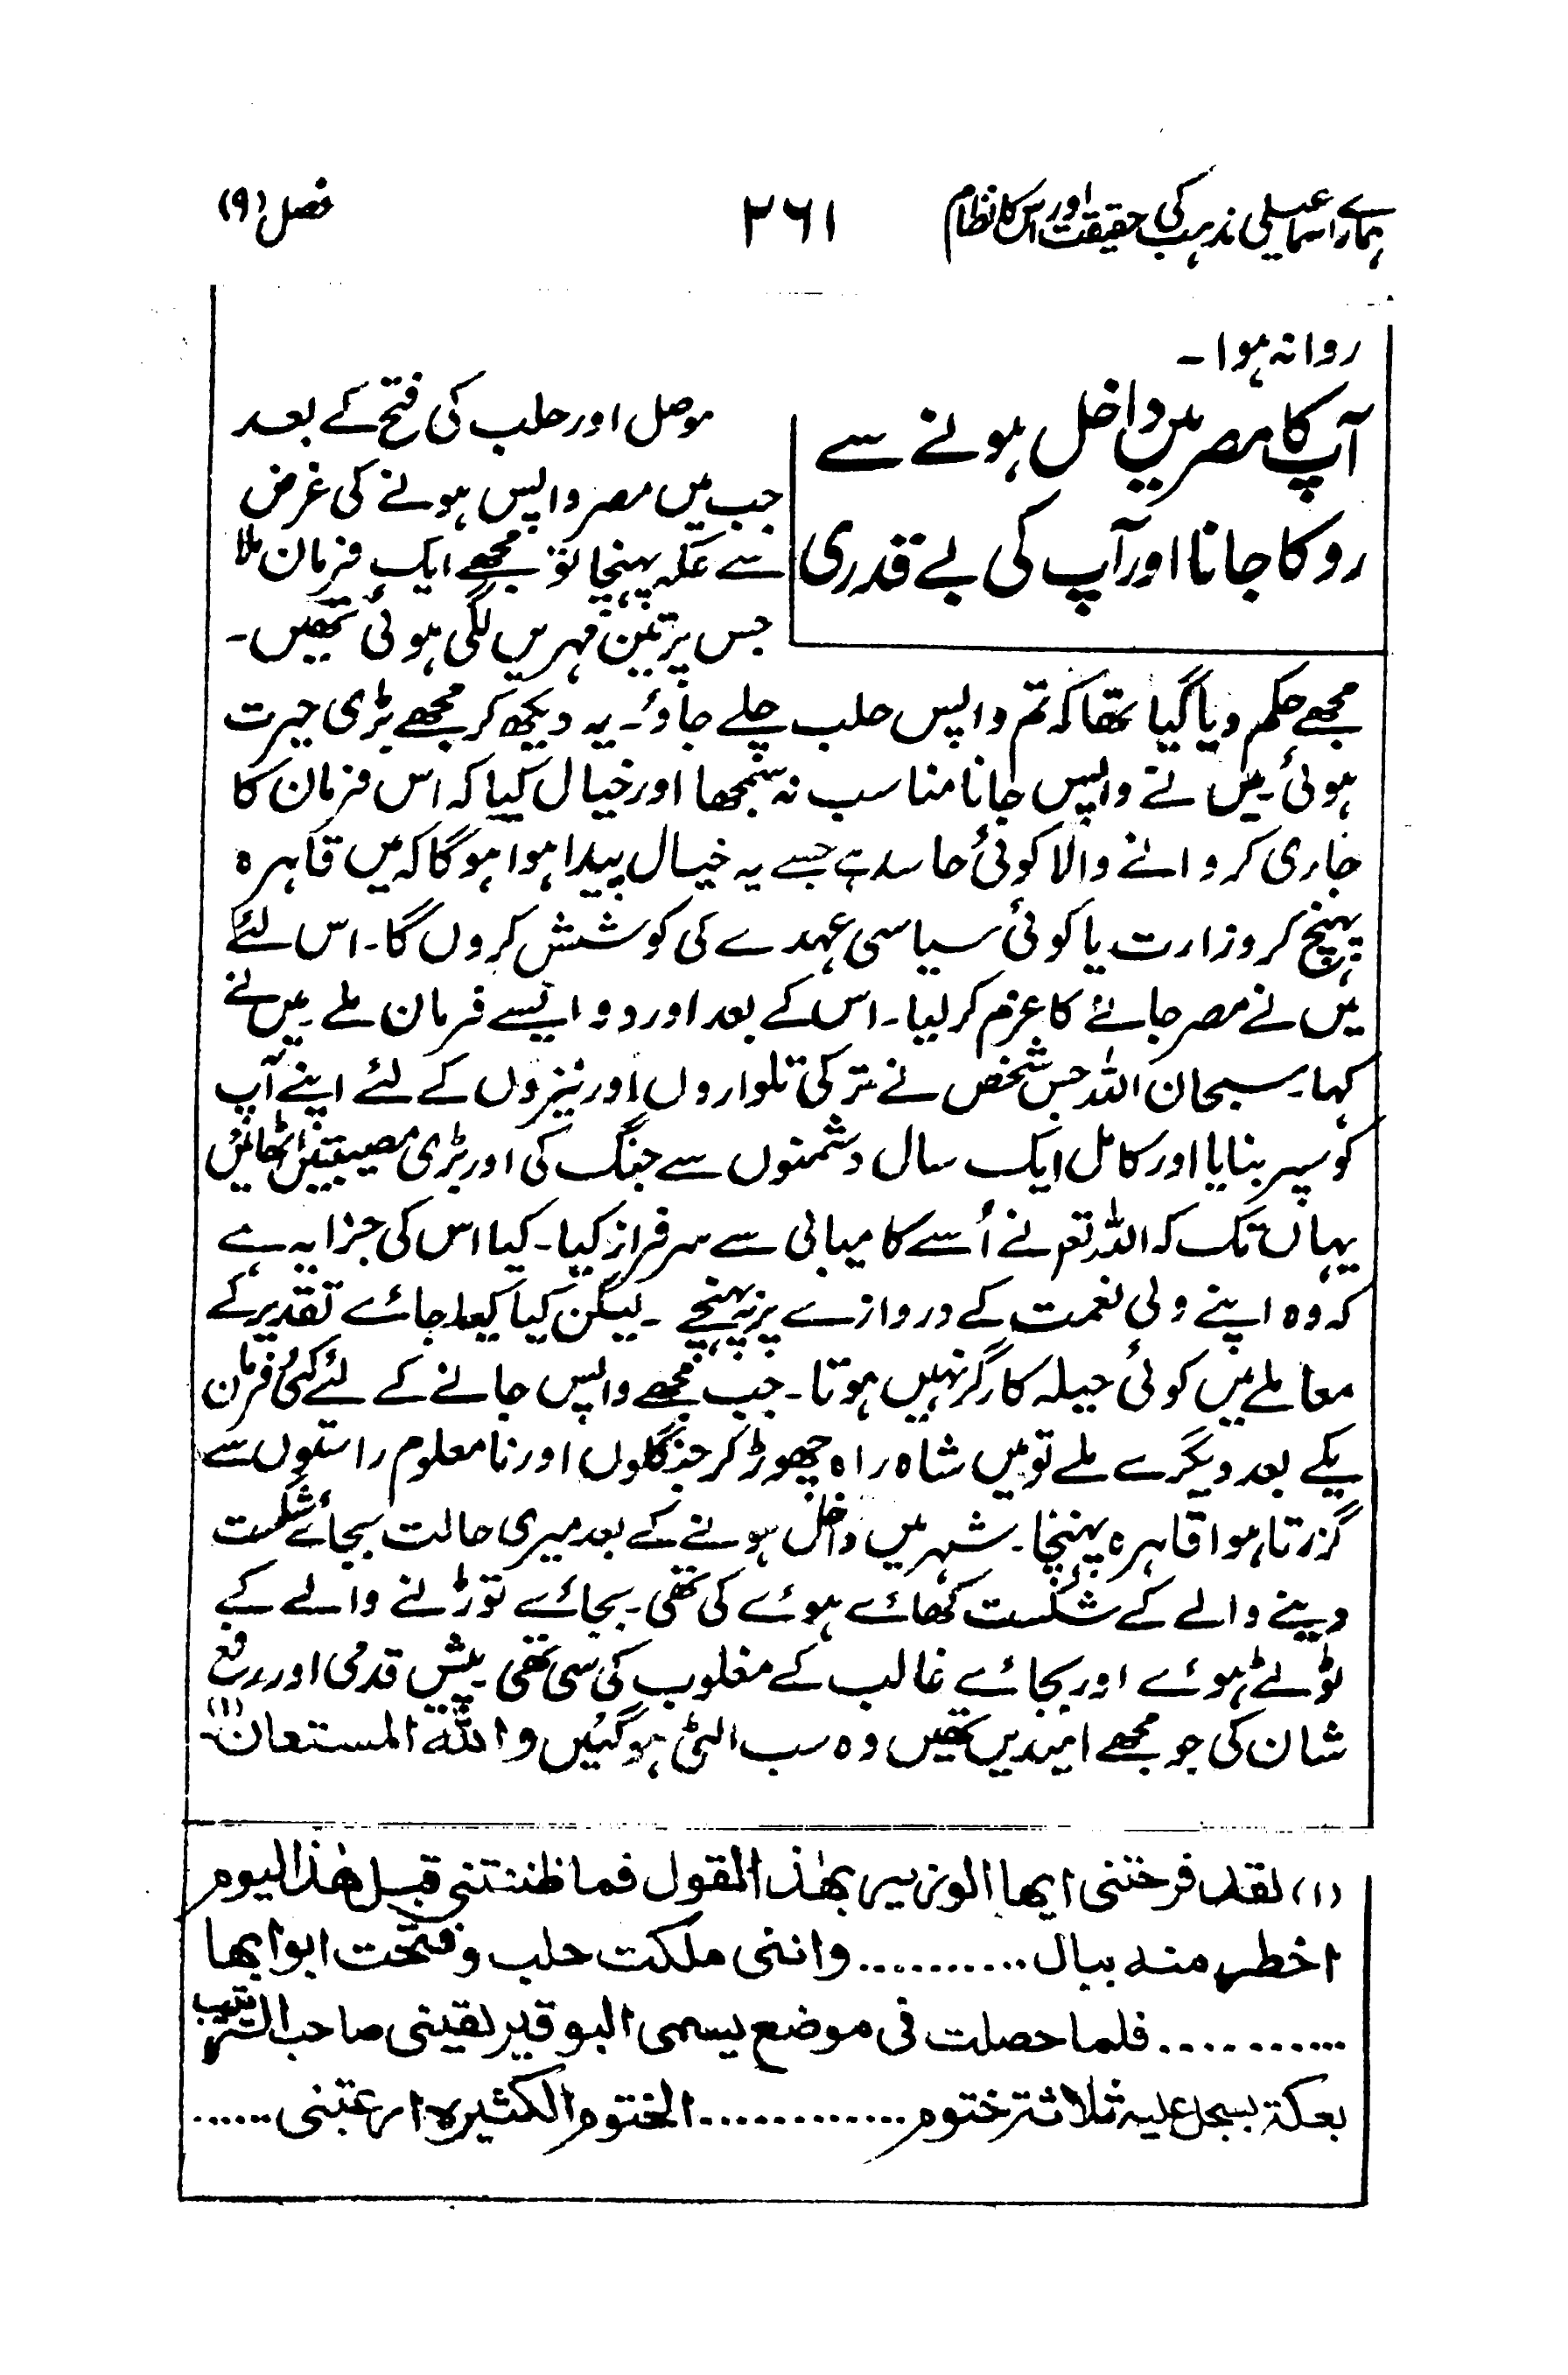 ہمارے اسماعیلی مذہب کی حقیقت اور اس کا نظام
۳۶۱
فصل (۹)
روانہ ہوا ۔
آپ کا مصر میں داخل ہونے سے
روکا جانا اور آپ کی بے قدری
موصل اور حلب کی فتح کے بعد
جب میں مصر واپس ہونے کی غرض
سے عکہ پہنچا تو مجھے ایک فرمان ملا
جس پر تین مہریں لگی ہوئی تھیں۔
مجھے حکم دیا گیا تھا کہ تم واپس حلب چلے جاؤ۔ یہ دیکھ کر مجھے بڑی حیرت
ہوئی۔ میں نے واپس جانا مناسب نہ سمجھا اور خیال کیا کہ اس فرمان کا
جاری کروانے والا کوئی حاسد ہے جسے یہ خیال پیدا ہوا ہوگا کہ میں قاہرہ
پہنچ کر وزارت یا کوئی سیاسی عہدے کی کوشش کروں گا۔ اس لئے
میں نے مصر جانے کا عزم کر لیا۔ اس کے بعد اور دو ایسے فرمان ملے۔ میں نے
کہا۔ سبحان اللہ جس شخص نے ترکی تلواروں اور نیزوں کے لئے اپنے آپ
کو سپر بنایا اور کامل ایک سال دشمنوں سے جنگ کی اور بڑی مصیبتیں اٹھائیں
یہاں تک کہ اللہ تعم نے اُسے کامیابی سے سرفراز کیا۔ کیا اس کی جزا یہ ہے
کہ وہ اپنے ولی نعمت کے دروازے پر نہ پہنچے ۔ لیکن کیا کیا جائے تقدیر کے
معاملے میں کوئی حیلہ کارگر نہیں ہوتا۔ جب مجھے واپس جانے کے لئے کئی فرمان
یکے بعد دیگرے ملے تو میں شاہ راہ چھوڑ کر جنگلوں اور نامعلوم راستوں سے
گزرتا ہوا قاہرہ پہنچا۔ شہر میں داخل ہونے کے بعد میری حالت بجائے شکست
دینے والے کے شکست کھائے ہوئے کی تھی۔ بجائے توڑنے والے کے
ٹوٹے ہوئے اور بجائے غالب کے مغلوب کی سی تھی۔ پیش قدمی اور رفع
شان کی جو مجھے امیدیں تھیں وہ سب الٹی ہو گئیں واللہ المستعان (۱)۔
(۱) لقد فرحتنی ایھا الوزیر بھٰذ المقول فما ظننتنی قبل ھٰذ الیوم
اخطر منہ ببال ........... واننی ملکت حلب وفتحت ابوابھا
........... فلما حصلت فی موضع یسمی البوقیر لقینی صاحب الترتیب
بعکۃ بسجل علیہ ثلاثۃ ختوم ............. الختوم الکثیرہ ارعبتنی ......